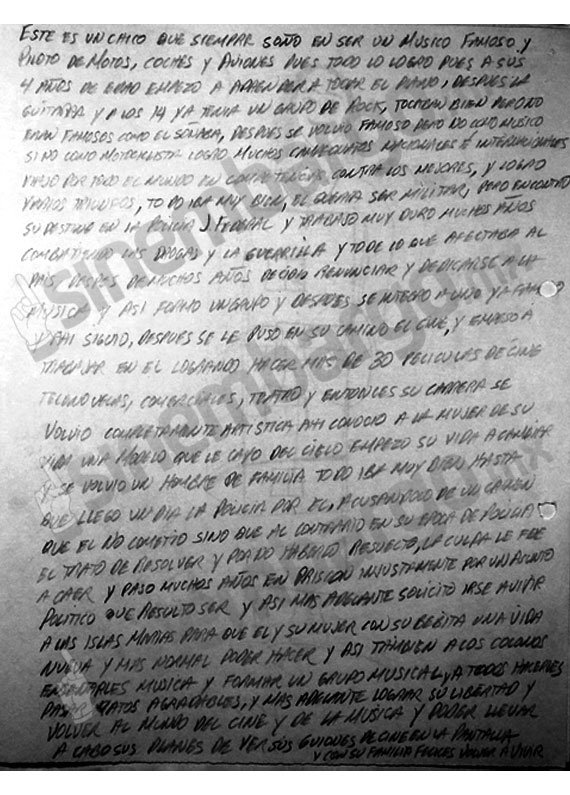 ESTE ES UN CHICO QUE SIEMPAR SOÑO EN SER UN MUSICO FAMOSO Y
PILOTO DE MOTOS, COCHES Y AVIONES PUES TODO LO LOGRO PUES A SUS
4 AÑOS DE EDAD EMPEZO A APRENDER A TOCAR EL PIANO, DESPUES LA
GUITARRA Y A LOS 14 YA TENIA UN GRUPO DE ROCK, TOCABAN BIEN PERO NO
ERAN FAMOSOS COMO EL SOÑABA, DESPUES SE VOLVIO FAMOSO PERO NO COMO MUSICO
SI NO COMO MOTOCICLISTA LOGRO MUCHOS CAMPEONATOS NACIONALES E INTERNACIONALES
VIAJO POR TODO EL MUNDO EN COMPETENCIAS CONTRA LOS MEJORES, Y LOGRO
VARIOS TRIUNFOS, TODO IBA MUY BIEN, EL QUERIA SER MILITAR, PERO ENCONTRO
SU DESTINO EN LA POLICIA J. FEDERAL Y TRABAJO MUY DURO MUCHOS AÑOS
COMBATIENDO LAS DROGAS Y LA GUERRILLA Y TODO LO QUE AFECTABA AL
PAIS, DESPUES DE MUCHOS AÑOS DECIDIO RENUNCIAR Y DEDICARSE A LA
MUSICA Y ASI FORMO UN GRUPO Y DESPUES SE INTEGRO A UNO YA
Y AHI SIGUIO, DESPUES SE LE PUSO EN SU CAMINO EL CINE, Y EMPESO A
TRABAJAR EN EL LOGRANDO HACER MAS DE 30 PELICULAS DE CINE
TELENOVELAS, COMERCIALES, TEATRO Y ENTONCES SU CARRERA SE
VOLVIO COMPLETAMENTE ARTISTICA AHI CONOCIO A LA MUJER DE SU
VIDA UNA MODELO QUE LE CAYO DEL CIELO EMPEZO SU VIDA A CAMBIAR
SE VOLVIO UN HOMBRE DE FAMILIA TODO IBA MUY BIEN HASTA
QUE LLEGO UN DIA LA POLICIA POR EL, ACUSANDOLO DE UN CRIMEN
QUE EL NO COMETIO SINO QUE AL CONTRARIO EN SU EPOCA DE POLICIA
EL TRATO DE RESOLVER Y HABERLO RESUELTO, LA CULPA LE FUE
A CAER Y PASO MUCHOS AÑOS EN PRISION INJUSTAMENTE POR UN ASUNTO
POLITICO QUE RESULTO SER Y ASI MAS ADELANTE SOLICITO IRSE A VIVIR
A LAS ISLAS MARIAS PARA QUE EL Y SU MUJER CON SU BEBITA UNA VIDA
NUEVA Y MAS NORMAL PODER HACER Y ASI TAMBIEN A LOS COLONOS
ENSEÑARLES MUSICA Y FORMAR UN GRUPO MUSICAL, Y A TODOS HACERLES
PASAR RATOS AGRADABLES, Y MAS ADELANTE LOGRAR SU LIBERTAD Y
VOLVER AL MUNDO DEL CINE Y DE LA MUSICA Y PODER LLEVAR
A CABO SUS PLANES DE VER SUS GUIONES DE CINE EN LA PANTALLA
Y CON SU FAMILIA FELICES VOLVER A VIVIR
sinembargo.mx